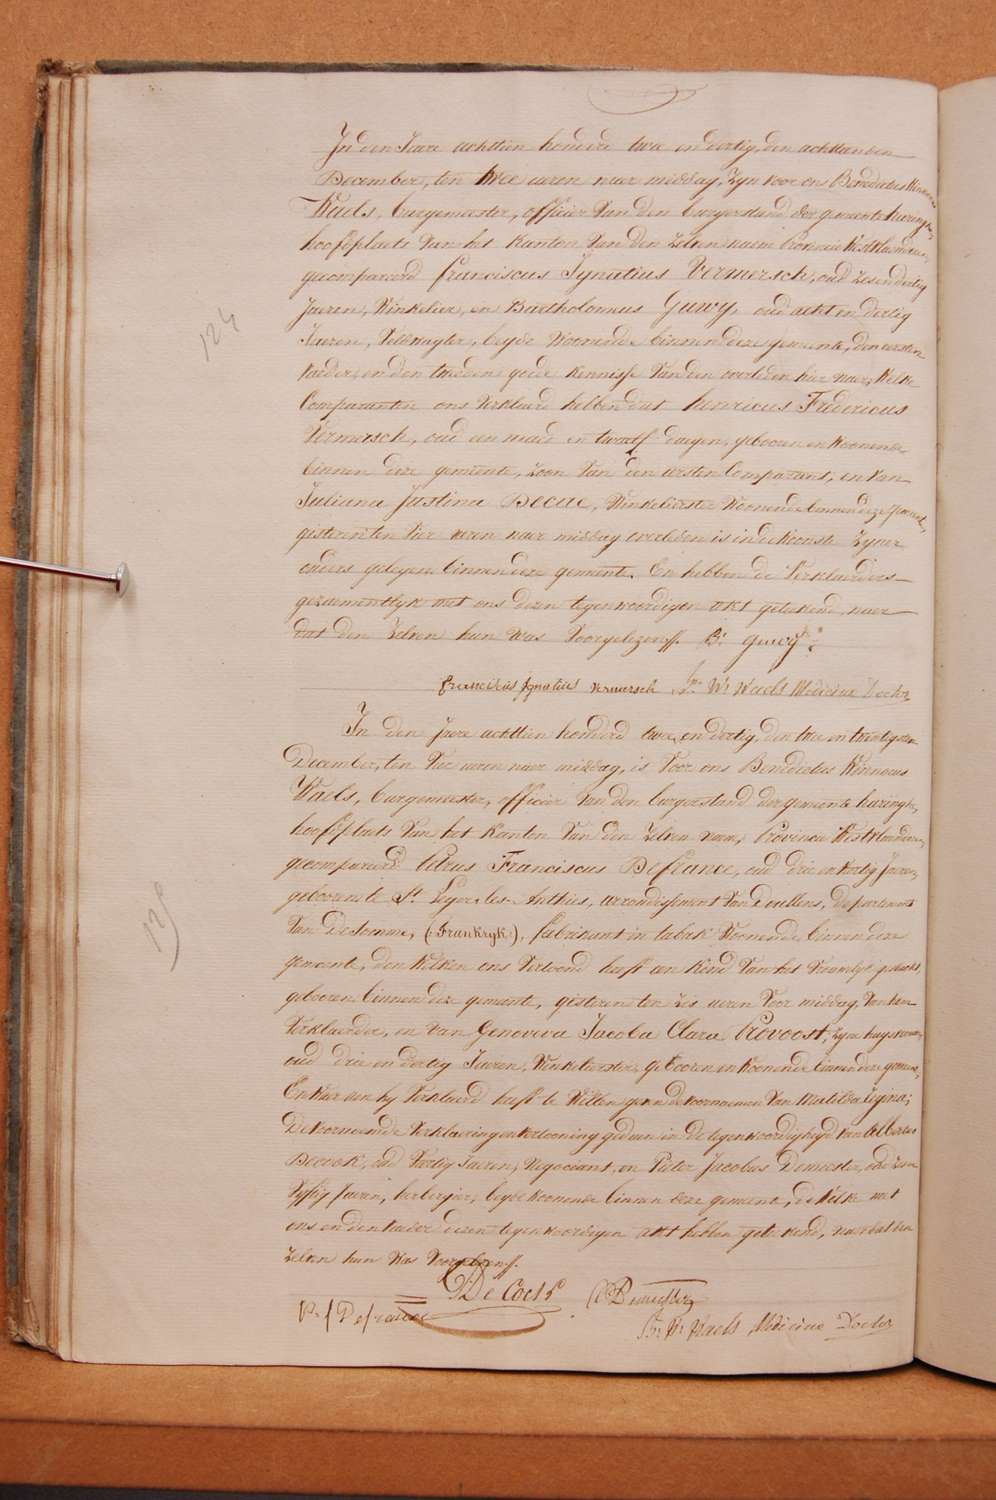 In den Jaere achttien honderd twee en dertig, den achttienden
December, ten twee uren naer middag, zyn voor ons Benedictus Winnocus
Waels, burgemeester, officier van den burgerstand der gemeente haringhe,
hoofdplaets van het kanton van den zelven naem Provincie Westvlaenderen,
gecompareerd franciscus Ignatius Vermersch, oud zes en dertig
Jaeren, Winkelier, en Bartholomeus Guwy, oud acht en dertig
Jaeren, veldwagter, beyde woonende binnen deze gemeente, den eersten
vaeder, en den tweeden goede kennisse van den overleden hier naer, welke
Comparanten ons verklaerd hebben dat henricus Fredericus
Vermersch, oud een maend en twaelf daegen, gebooren en woonende
binnen deze gemeente, zoon van den eersten Comparant, en van
Juliana Justina Becue, Winkelierster woonende binnen deze gemeente,
gisteren ten vier uren naer middag overleden is in de wooninge zyner
ouders gelegen binnen deze gemeente. En hebben de verklaerders
gezaementlyk met ons dezen tegenwoordigen akt geteekend, naer
dat den zelven hun was voorgelezen. B. Guwy
124
franciscus Ignatius vermersch Bn. Ws. Waels Medicinae Doctor
In den Jaere achttien honderd twee en dertig, den twee en twintigsten
December, ten vier uren naer middag, is voor ons Benedictus Winnocus
Waels, burgemeester, officier van den burgerstand der gemeente haringhe,
hoofdplaets van het kanton van den zelven naem, Provincie Westvlaenderen,
gecompareerd Petrus Franciscus Defrance, oud drie en veertig Jaeren,
geboren te St. Leger-les-Authies, arrondissement van Doullens, departement
van De Somme, (Frankryk), fabrikant in tabak woonende binnen deze
gemeente, den welken ons vertoond heeft een kind van het vrouwelyk geslacht,
gebooren binnen deze gemeente, gisteren ten zes uren voor middag, van hem
verklaerder, en van Genoveva Jacoba Clara Provoost, zyne huysvrouw,
oud drie en dertig Jaeren, Winkelierster, gebooren en woonende binnen deze gemeente,
En waer aen hy verklaerd heeft te willen geven de voornaemen van Matilda Regina;
De voornoemde verklaering en vertooning gedaen in de tegenwoordigheyd van
oud veertig Jaeren, Negociant, en Pieter Jacobus Demeester, oud
vyftig Jaeren, herbergier, beyde woonende binnen deze gemeente, de welke met
ons en den vaeder dezen tegenwoordigen akt hebben geteekend, naer dat den
zelven hun was voorgelezen.
125
De Cock P Demeester
P. f Defrance Bn. Ws. Waels Medicinae Doctor